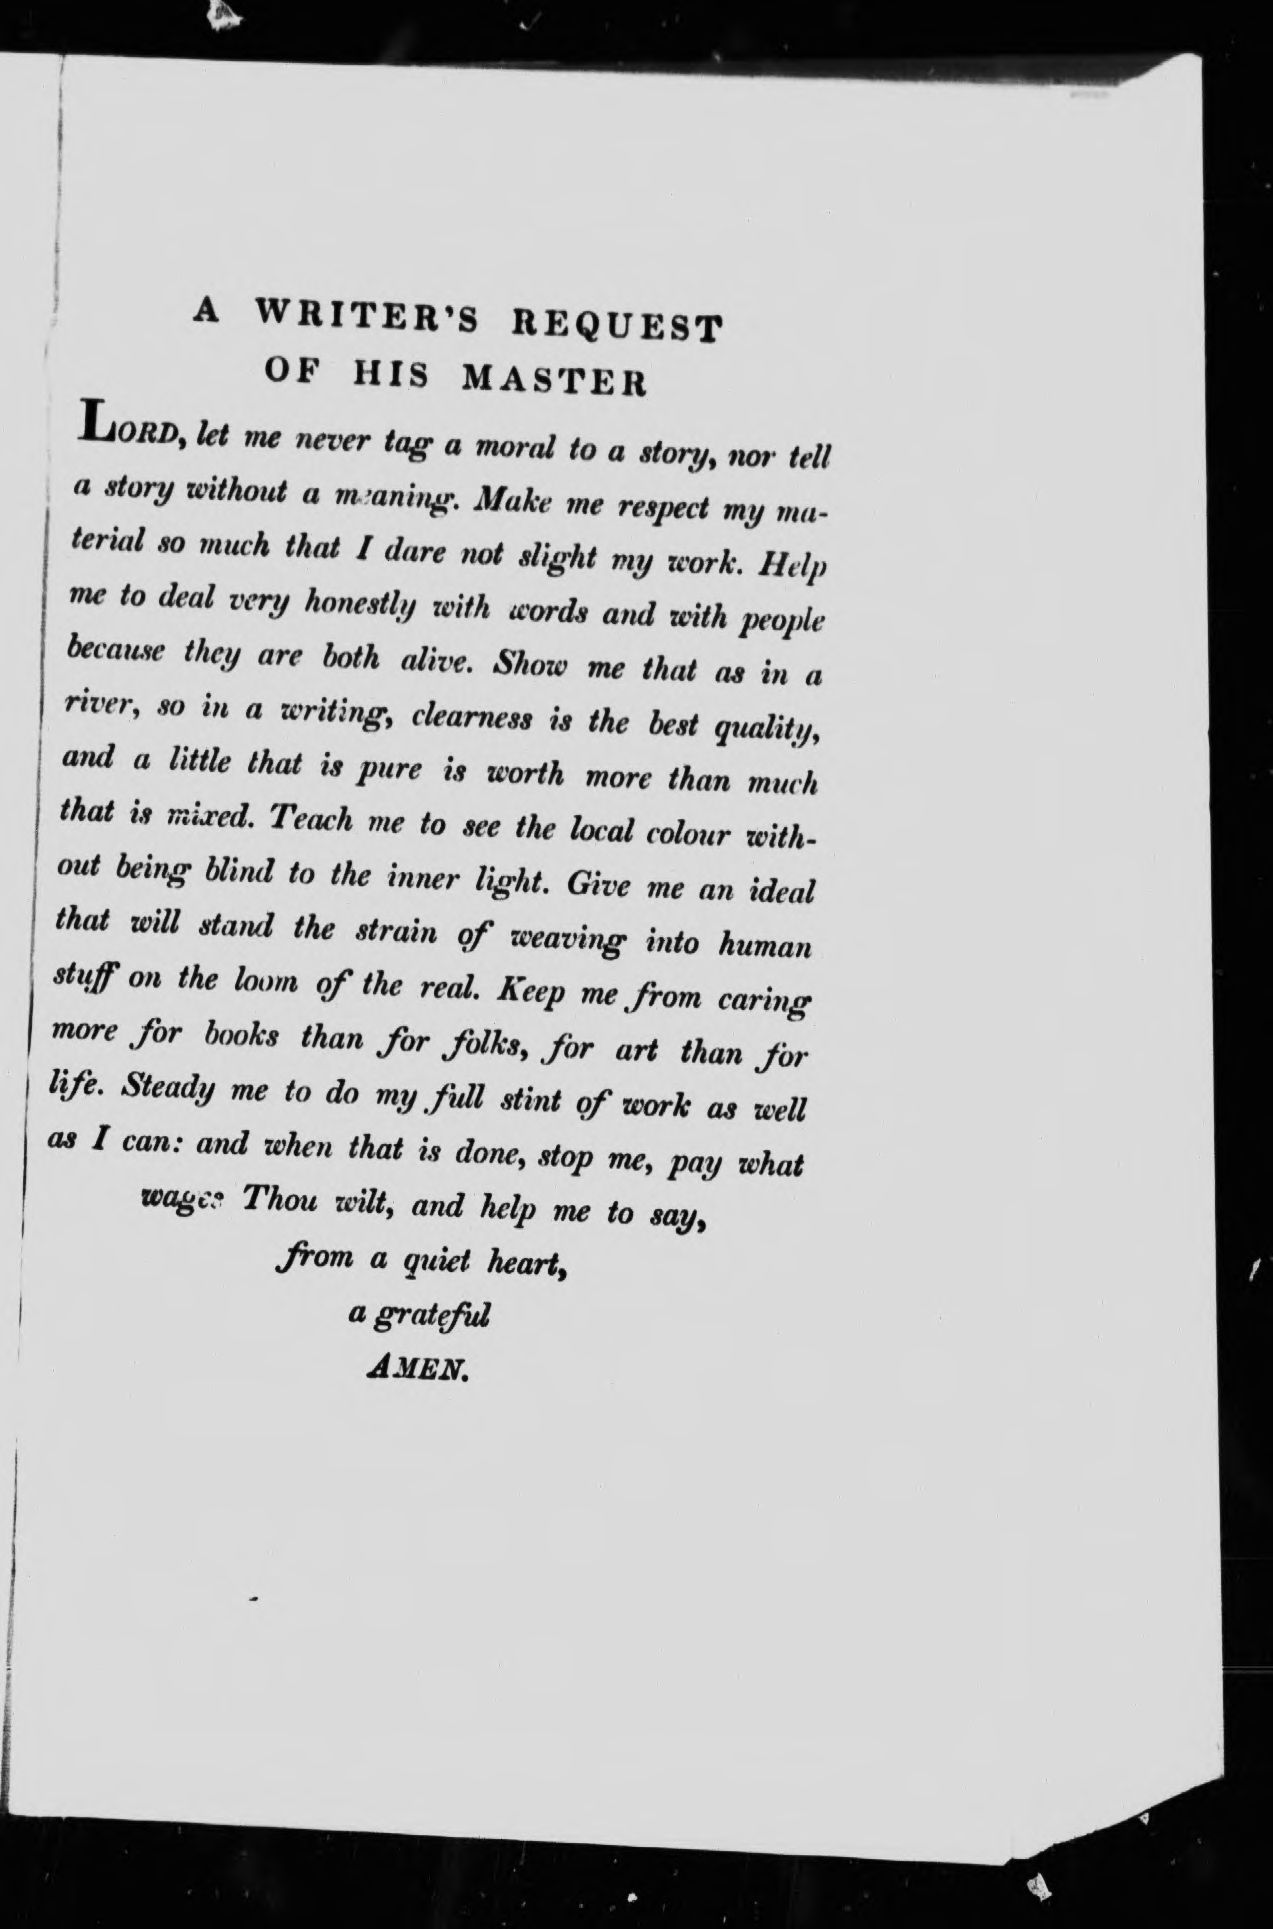 A WRITER'S REQUEST
OF HIS MASTER
LORD, let me never tag a moral to a story, nor tell
a story without a meaning. Make me respect my ma-
terial so much that I dare not slight my work. Help
me to deal very honestly with words and with people
because they are both alive. Show me that as in a
river, so in a writing, clearness is the best quality,
and a little that is pure is worth more than much
that is mixed. Teach me to see the local colour with-
out being blind to the inner light. Give me an ideal
that will stand the strain of weaving into human
stuff on the loom of the real. Keep me from caring
more for books than for folks, for art than for
life. Steady me to do my full stint of work as well
as I can: and when that is done, stop me, pay what
wages Thou wilt, and help me to say,
from a quiet heart,
a grateful
AMEN.